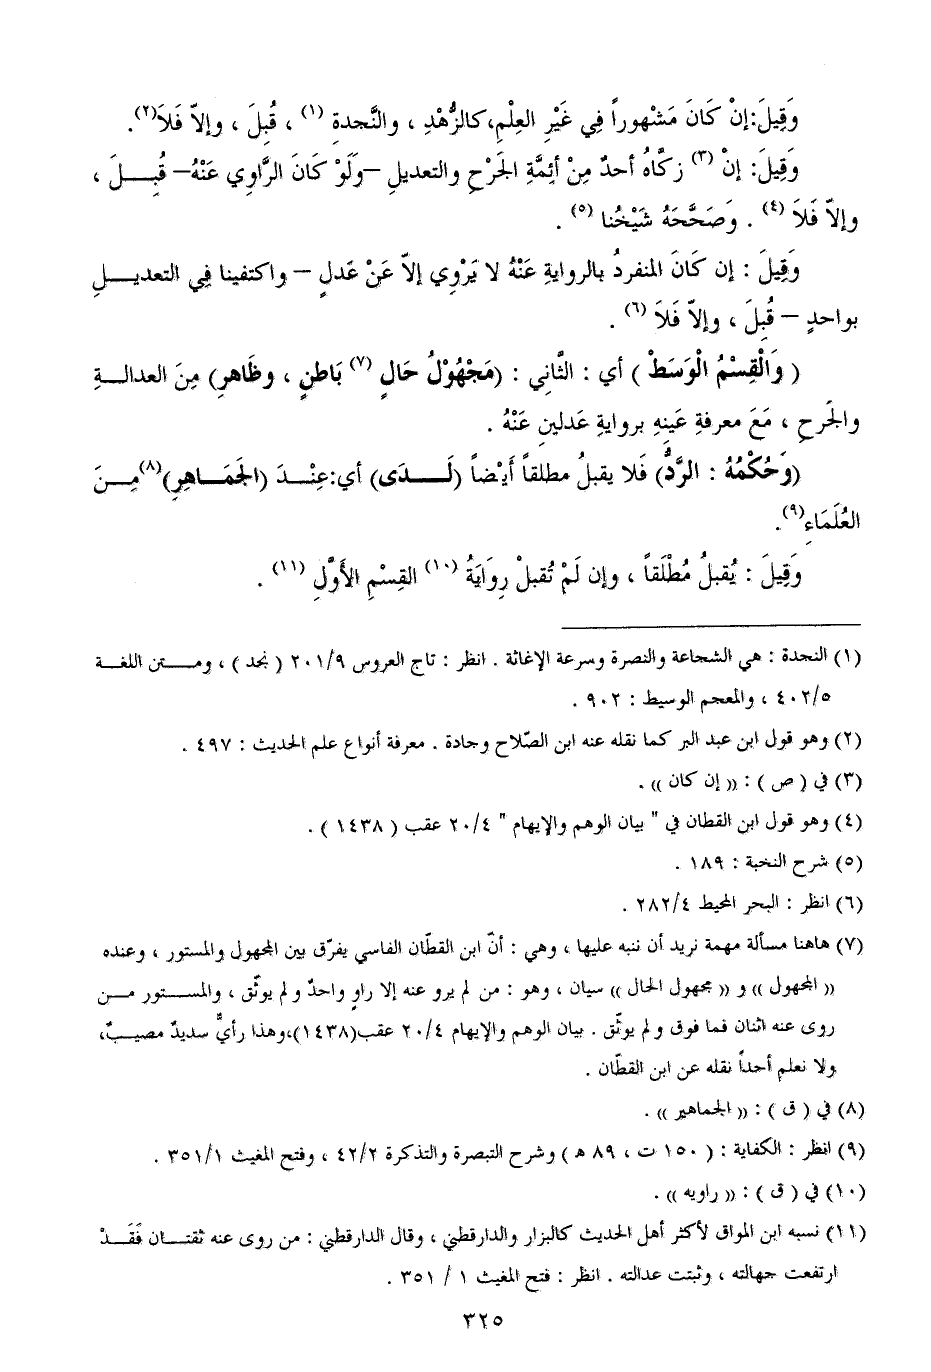 وَقِيلَ:إنْ كَانَ مَشْهوراً فِي غَيْرِ العِلْمِ،كالزُّهْدِ ، والنَّجدةِ (١) ، قُبِلَ ، وإلاّ فَلاَ(٢).
وَقِيلَ: إنْ (٣) زكَّاهُ أحدٌ مِنْ أئِمَّةِ الجَرْحِ والتعديلِ –وَلَوْ كَانَ الرَّاوِي عَنْهُ– قُبِـــلَ ،
وإلاّ فَلاَ (٤) . وَصَحَّحَهُ شَيْخُنا (٥) .
وَقِيلَ : إن كَانَ المنفردُ بالروايةِ عَنْهُ لا يَرْوِي إلاّ عَنْ عَدلٍ – واكتفينا فِي التعديـــلِ
بواحدٍ – قُبِلَ ، وإلاّ فَلاَ (٦) .
( وَالْقِسْمُ الْوَسَطْ ) أي : الثَّانِي : (مَجْهُوْلُ حَالٍ (٧) بَاطنٍ ، وظَاهرٍ) مِنَ العدالـــةِ
والجَرحِ ، مَعَ معرفةِ عَينِهِ بروايةِ عَدلينِ عَنْهُ .
(وَحُكْمُهُ : الرَّدُّ) فَلا يقبلُ مطلقاً أَيْضاً (لَـــدَى) أي:عِنْـــدَ (الجَمَـــاهِرِ)(٨)مِـــنَ
العُلَمَاءِ(٩).
وَقِيلَ : يُقبلُ مُطْلَقاً ، وإن لَمْ تُقبلْ رِوَايَةُ (١٠) القِسْمِ الأوَّلِ (١١) .
(١) النجدة : هي الشجاعة والنصرة وسرعة الإغاثة . انظر : تاج العروس ٢٠١/٩ ( نجد ) ، ومـــتن اللغـــة
٤٠٢/٥ ، والمعجم الوسيط : ٩٠٢ .
(٢) وهو قول ابن عبد البر كما نقله عنه ابن الصّلاح وجادة . معرفة أنواع علم الحديث : ٤٩٧ .
(٣) في ( ص ) : (( إن كان )) .
(٤) وهو قول ابن القطان في " بيان الوهم والإيهام " ٢٠/٤ عقب ( ١٤٣٨ ) .
(٥) شرح النخبة : ١٨٩ .
(٦) انظر : البحر المحيط ٢٨٢/٤ .
(٧) هاهنا مسألة مهمة نريد أن ننبه عليها ، وهي : أنّ ابن القطّان الفاسي يفرّق بين المجهول والمستور ، وعنده
(( المجهول )) و (( مجهول الحال )) سيان ، وهو : من لم يرو عنه إلا راوٍ واحدٌ ولم يوثّق ، والمســـتور مـــن
روى عنه اثنان فما فوق ولم يوثّق . بيان الوهم والإيهام ٢٠/٤ عقب(١٤٣٨)،وهذا رأيٌ سديدٌ مصيبٌ،
ولا نعلم أحداً نقله عن ابن القطّان .
(٨) في ( ق ) : (( الجماهير )) .
(٩) انظر : الكفاية : ( ١٥٠ ت ، ٨٩ هـ ) وشرح التبصرة والتذكرة ٤٢/٢ ، وفتح المغيث ٣٥١/١ .
(١٠) في ( ق ) : (( راويه )) .
(١١) نسبه ابن المواق لأكثر أهل الحديث كالبزار والدارقطني ، وقال الدارقطني : من روى عنه ثقتـــان فَقَـــدْ
ارتفعت جهالته ، وثبتت عدالته . انظر : فتح المغيث ١ / ٣٥١ .
٣٢٥